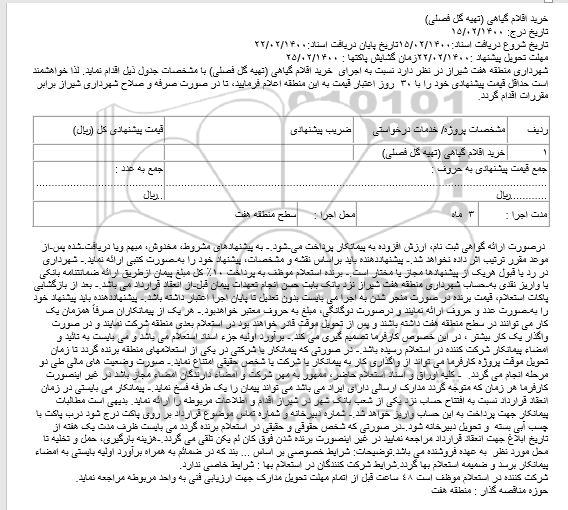 خرید اقلام گیاهی (تهیه گل فصلی)
تاریخ درج: ۱۵/۰۲/۱۴۰۰
تاریخ شروع دریافت اسناد:۱۵/۰۲/۱۴۰۰تاریخ پایان دریافت اسناد:۲۲/۰۲/۱۴۰۰
مهلت تحویل پیشنهاد :۲۲/۰۲/۱۴۰۰زمان گشایش پاکتها : ۲۵/۰۲/۱۴۰۰
شهرداری منطقه هفت شیراز در نظر دارد نسبت به اجرای خرید اقلام گیاهی (تهیه گل فصلی) با مشخصات جدول ذیل اقدام نماید. لذا خواهشمند
است حداقل قیمت پیشنهادی خود را با ۳۰ روز اعتبار قیمت به این منطقه اعلام فرمایید، تا در صورت صرفه و صلاح شهرداری شیراز برابر
مقررات اقدام گردد.
ردیف مشخصات پروژه/ خدمات درخواستی ضریب پیشنهادی قیمت پیشنهادی کل (ریال)
۱ خرید اقلام گیاهی (تهیه گل فصلی)
جمع قیمت پیشنهادی به حروف : جمع به عدد :
............ریال ..ریال
مدت اجرا : ۳ ماه محل اجرا : سطح منطقه هفت
درصورت ارائه گواهی ثبت نام، ارزش افزوده به پیمانکار پرداخت می‌شود.- به پیشنهادهای مشروط، مخدوش، مبهم ویا دریافت‌شده پس‌از
موعد مقرر ترتیب اثر داده نخواهد شد.- پیشنهاددهنده باید براساس نقشه و مشخصات، پیشنهاد خود را به‌صورت کتبی ارائه نماید.- شهرداری
در رد یا قبول هریک از پیشنهادها مجاز یا مختار است.- برنده استعلام موظف به پرداخت ۱۰٪ کل مبلغ پیمان ازطریق ارائه ضمانتنامه بانکی
یا واریز نقدی به‌حساب شهرداری منطقه هفت شیراز نزد بانک بابت حسن انجام تعهدات پیمان قبل‌از انعقاد قرارداد می‌باشد.- بعد از بازگشایی
پاکات استعلام، قیمت برنده در صورت منجر شدن به اجرا می بایست بدون تعدیل تا پایان اجرا اعتبار داشته باشد.- پیشنهاددهنده باید پیشنهاد خود
را به‌صورت عدد و حروف ارائه نمایند و درصورت دوگانگی، مبلغ به حروف معتبر خواهدبود.- هر یک از پیمانکاران صرفاً همزمان یک
کار می توانند در سطح منطقه هفت داشته باشند و پس از تحویل موقت قادر خواهند بود در استعلام بعدی منطقه شرکت نمایند و در صورت
واگذار یک کار بیشتر ، در این خصوص کارفرما تصمیم گیری می کند.- برآورد اولیه جزء اسناد استعلام می باشد و می بایست به تائید و
امضاء پیمانکار شرکت کننده در استعلام رسیده باشد.- در صورتی که پیمانکار یا شرکتی در یکی از استعلامهای منطقه برنده گردد تا زمان
تحویل موقت پروژه کارفرما می‌تواند از واگذاری کار به پیمانکار یا شرکت یا شخص حقیقی امتناع نماید.- صورت وضعیت های مالی طی دو
مرحله انجام می گردد. - کلیه اوراق و اسناد استعلام حاضر، ممهور به مهر شرکت و امضاء دارندگان امضاء مجاز باشد در غیر اینصورت
کارفرما هر زمان که متوجه گردد مدارک ارسالی دارای ایراد می باشد می تواند پیمان را یک طرفه فسخ نماید.- پیمانکار می بایستی در زمان
انعقاد قرارداد نسبت به افتتاح حساب نزد یکی از شعب بانک شهر در شهر شیراز اقدام و اطلاعات مربوطه را ارائه نماید. بدیهی است مطالبات
پیمانکار جهت پرداخت به این حساب واریز خواهد شد.- شماره دبیرخانه و شماره تماس موضوع قرارداد بر روی پاکت درج شود درب پاکت با
چسب آبی بسته و تحویل دبیرخانه شود.-در صورتی که شخص حقوقی و حقیقی در استعلام برنده گردد می بایست ظرف مدت یک هفته از
تاریخ ابلاغ جهت انعقاد قرارداد مراجعه نمایید در غیر اینصورت برنده شدن فوق کان لم یکن تلقی می گردد.-هزینه بارگیری، حمل و تخلیه تا
محل مورد نظر به عهده فروشنده می باشد.توضیحات: شرایط خصوصی بر اساس ... بند که در ضمائم به همراه برآورد اولیه بایستی به امضاء
پیمانکار برسد و ضمیمه استعلام بها گردد.شرایط شرکت کنندگان در استعلام بها : شرایط خاصی ندارد.
شرکت کننده در استعلام موظف است ۴۸ ساعت قبل از اتمام مهلت تحویل مدارک جهت ارزیابی فنی به واحد مربوطه مراجعه نماید.
حوزه مناقصه گذار : منطقه هفت